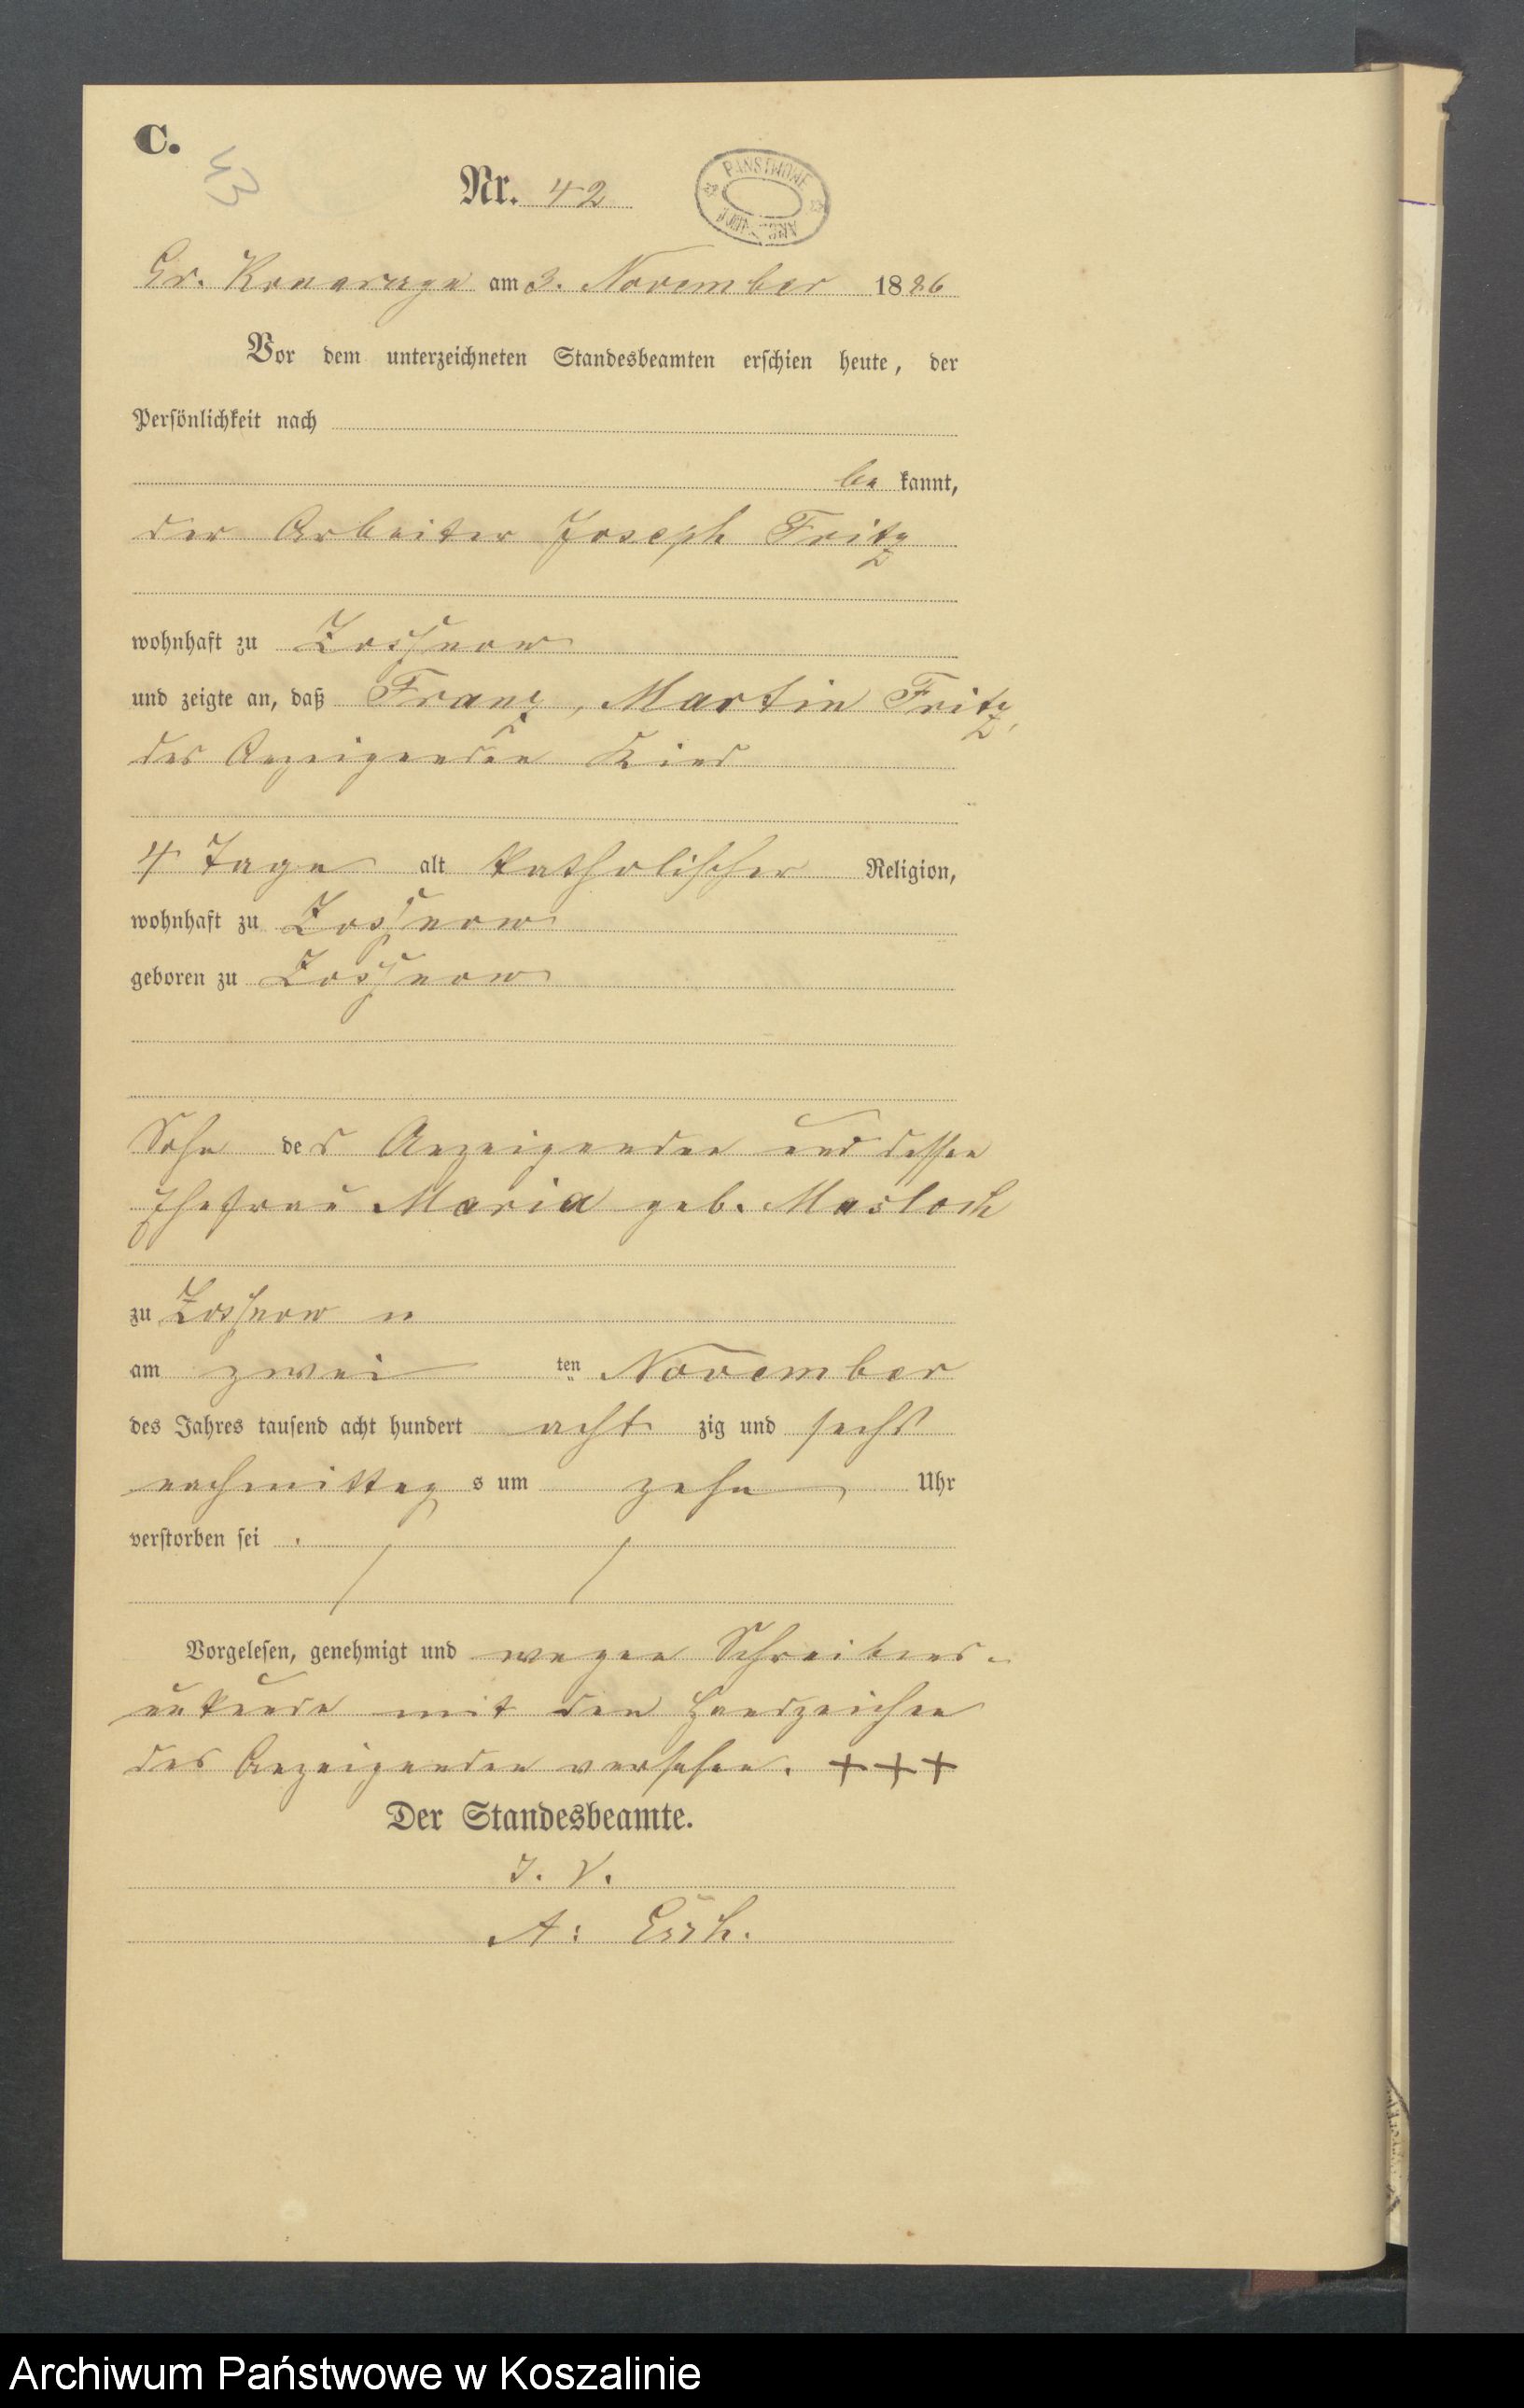 C.
43
Nr. 42
PANSTWOWE
Gr. am 3. November 1886
Vor dem unterzeichneten Standesbeamten erschien heute, der
Persönlichkeit nach
be kannt,
der Arbeiter Joseph Fritz
wohnhaft zu Zossnow
und zeigte an, daß Franz, Martin Fritz,
des Anzeigenden Kind
4 Tage alt katholischer Religion,
wohnhaft zu Zossnow
geboren zu Zossnow
Sohn des Anzeigenden und dessen
Ehefrau Maria geb. Masloch
zu Zossnow
am zwei ten November
des Jahres tausend acht hundert acht zig und sechs
nachmittag s um zehn Uhr
verstorben sei .
Vorgelesen, genehmigt und wegen Schreibens-
unkunde mit den Handzeichen
des Anzeigenden versehen. +++
Der Standesbeamte.
I. V.
A:
Archiwum Państwowe w Koszalinie